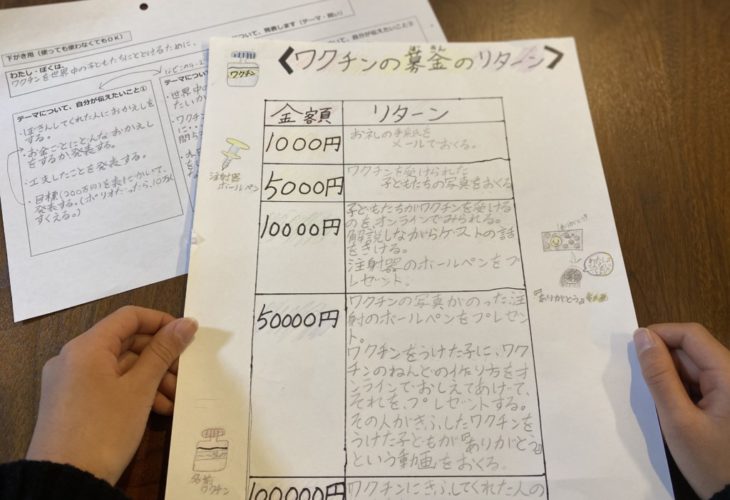 下がき用（使っても使わなくてもOK）
わたし・ぼくは、
ワクチンを世界中の子どもたちにとどけるために、
発表します（テーマ・問い）
テーマについて、自分が伝えたいこと①
・ぼきんしてくれた人におかえしをする。
・お金ごとにどんなおかえしをするか発表する。
・工夫したことを発表する。
・目標（200万円）を表にかいて、発表する。
自分が伝えたいこと②
ワクチン
〈ワクチンの募金のリターン〉
金額
リターン
1000円
お礼の手紙を
メールでおくる。
5000円
ワクチンを受けられた
子どもたちの写真をおくる
10000円
子どもたちがワクチンを受ける
のをオンラインでみられる。
解説しながらゲストの話
をきける。
注射器のボールペンをプ
レゼント.
50000円
ワクチンの写真がのった注
射のボールペンをプレゼン
ト。
ワクチンをうけた子に、ワク
チンのねんどの作り方をオ
ンラインでおしえてあげて、
それを、プレゼントする。
その人がきふしたワクチンを
うけた子どもが『ありがとう』
という動画をおくる。
100000円
ワクチンにきふしてくれた人の
注射器
ボールペン
ありがとう
ワクチン